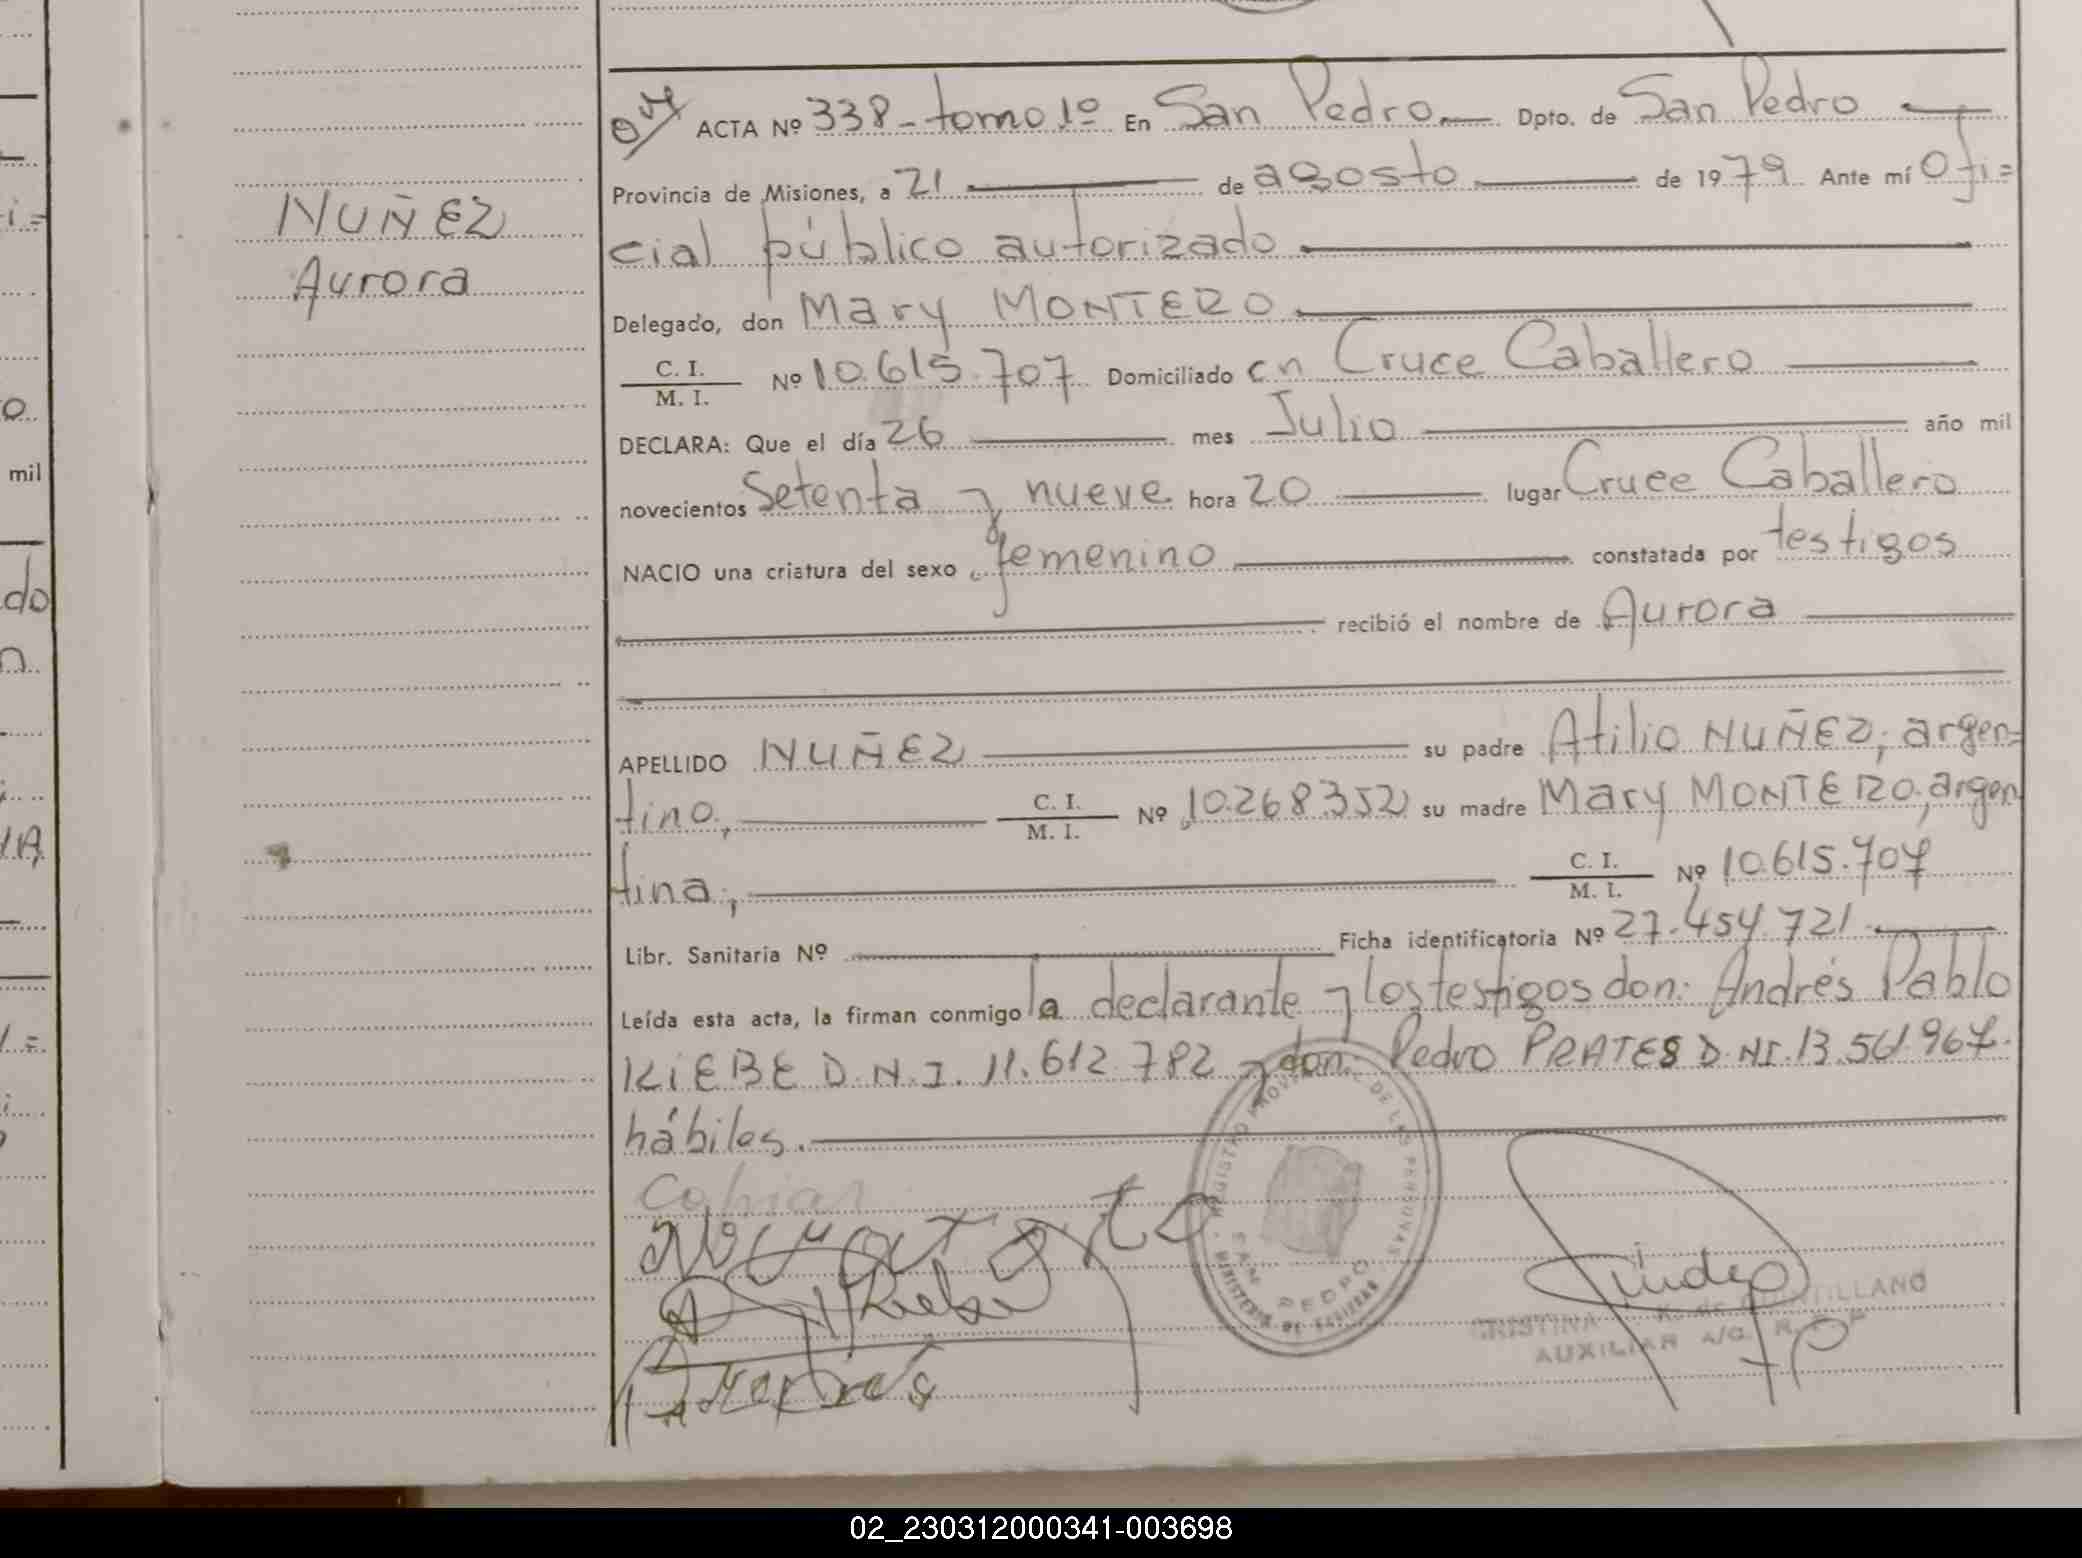 NUÑEZ
Aurora
ACTA Nº 338 - tomo 1º En San Pedro Dpto. de San Pedro
Provincia de Misiones, a 21 de agosto de 1979 Ante mí Ofi=
cial público autorizado
Delegado, don Mary MONTERO
C. I. / M. I. Nº 10.615.707 Domiciliado en Cruce Caballero
DECLARA: Que el día 26 mes Julio año mil
novecientos Setenta y nueve hora 20 lugar Cruce Caballero
NACIO una criatura del sexo femenino constatada por testigos
recibió el nombre de Aurora
APELLIDO NUÑEZ su padre Atilio NUÑEZ, argen=
tino, C. I. / M. I. Nº 10.268.352 su madre Mary MONTERO, argen
tina, C. I. / M. I. Nº 10.615.707
Libr. Sanitaria Nº Ficha identificatoria Nº 27.454.721
Leída esta acta, la firman conmigo la declarante y los testigos don: Andrés Pablo
KIEBE D.N.I. 11.612.782 y don: Pedro PRATES D.NI. 13.561.967.
hábiles.
REGISTRO PROVINCIAL DE LAS PERSONAS
SAN PEDRO
CRISTINA K. de QUINTILLANO
AUXILIAR A/C.
mil
do
02_230312000341-003698